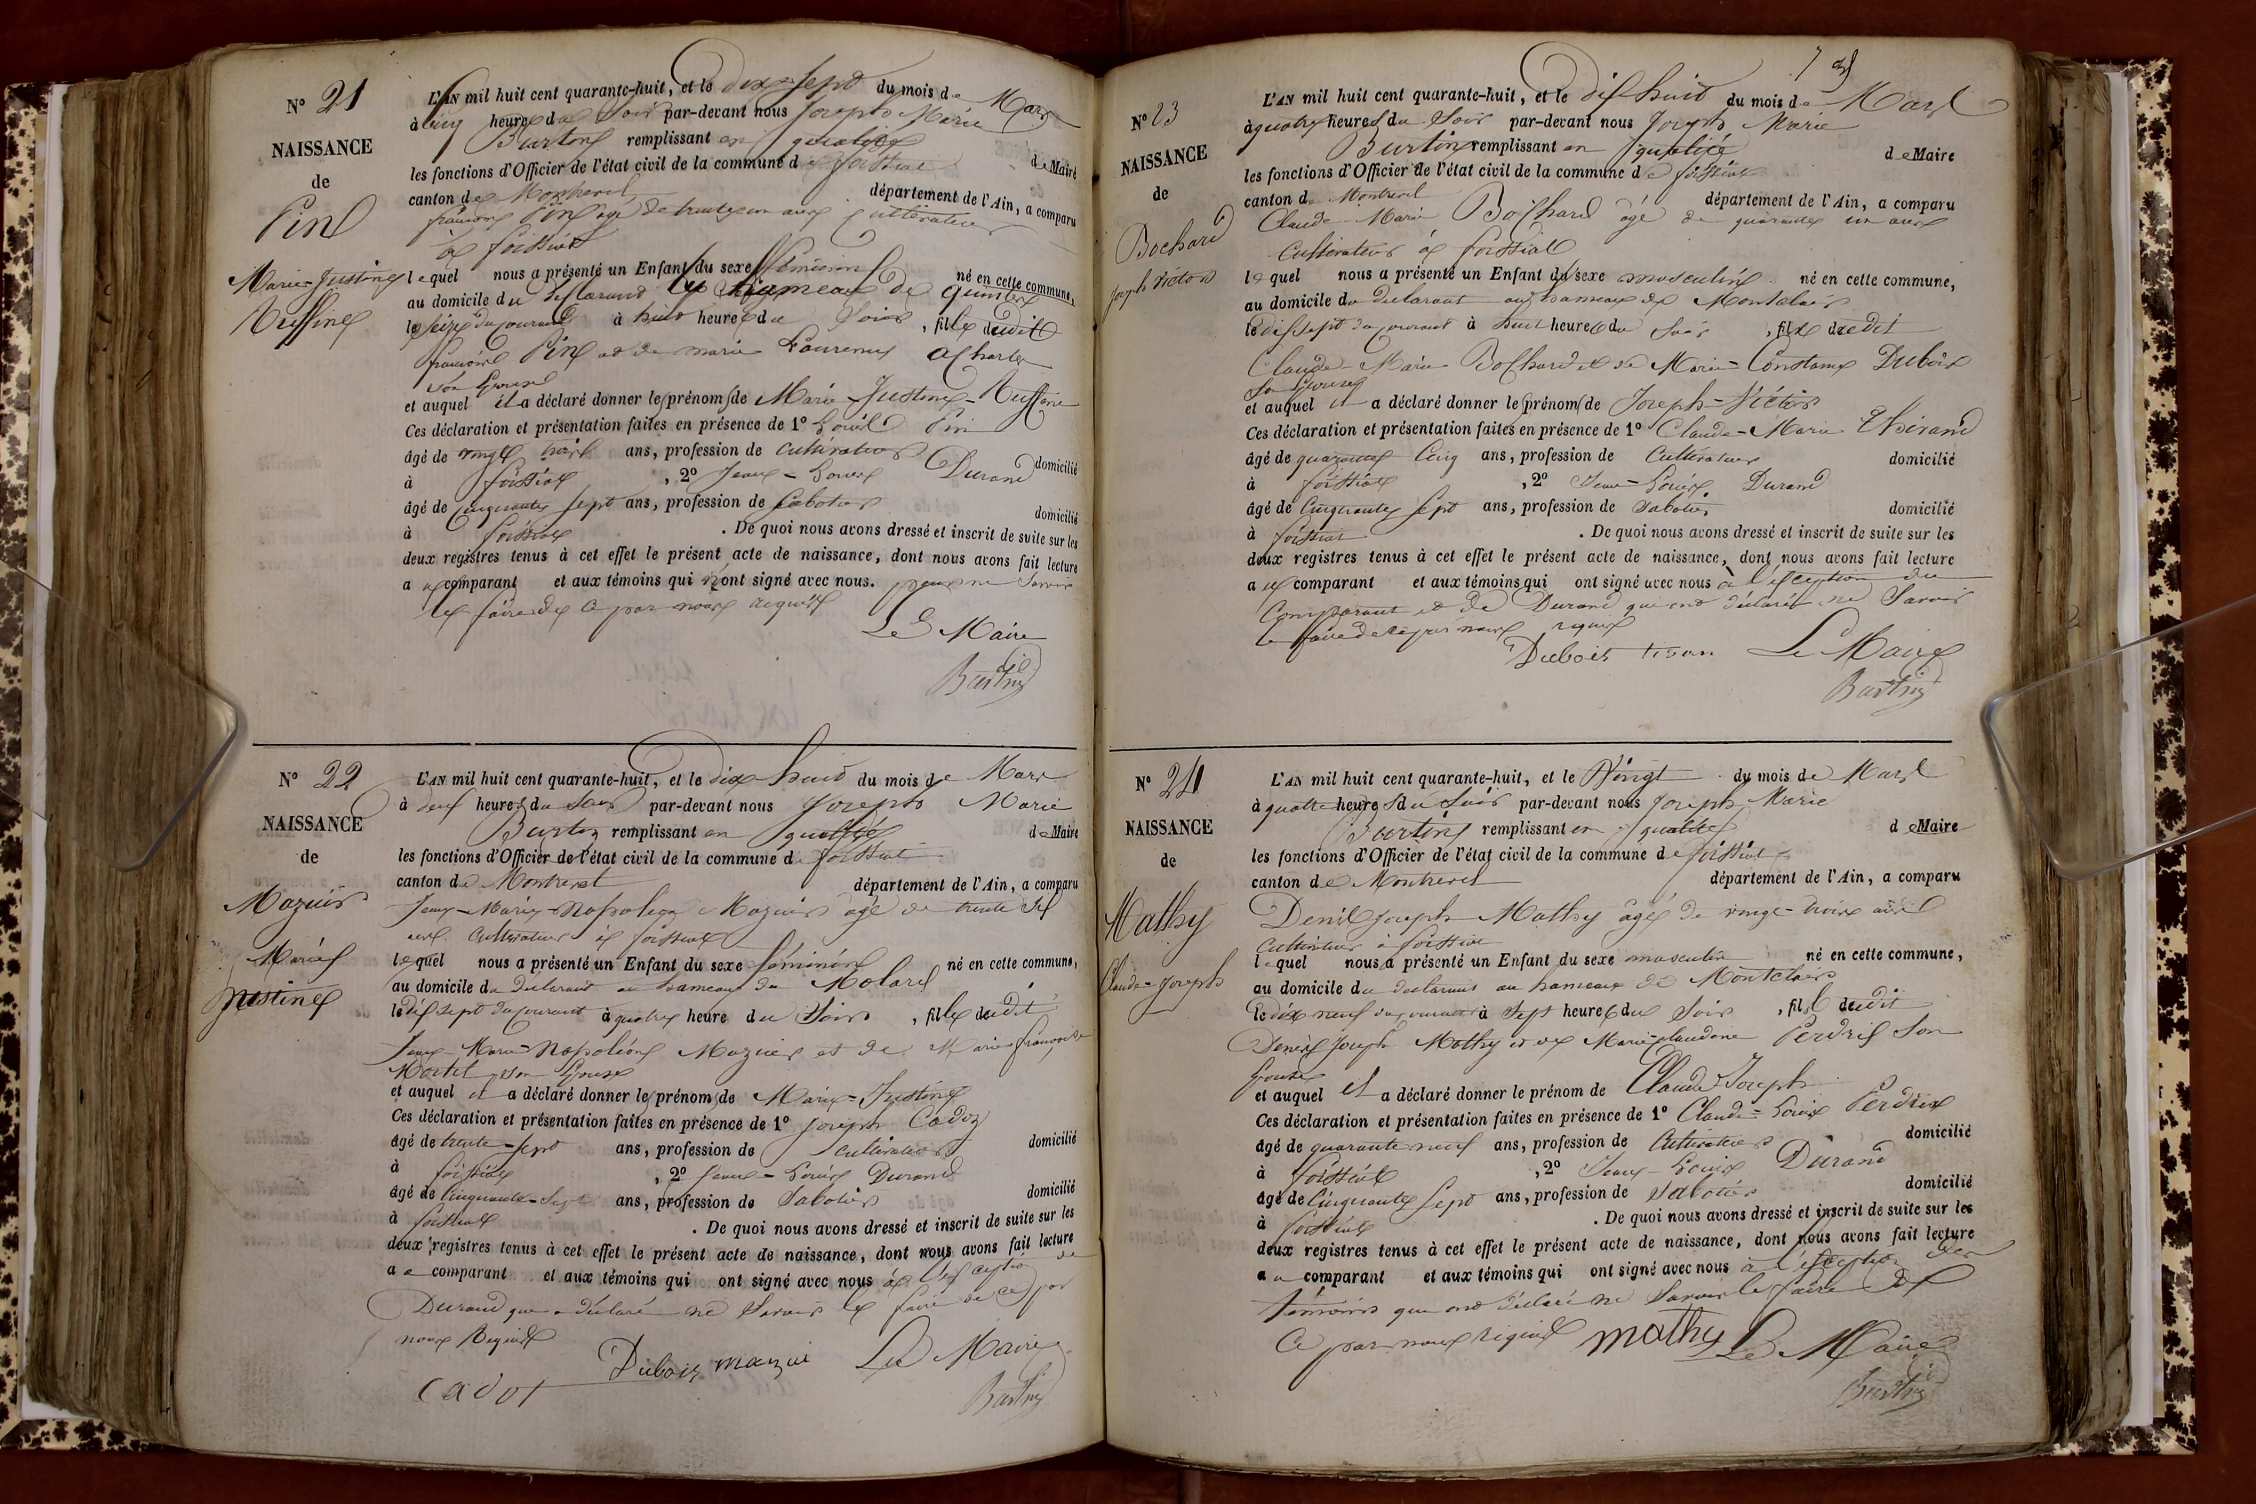 N° 21
NAISSANCE
de
Pin
Marie-Justine
Ruffine
L'AN mil huit cent quarante-huit, et le dix-sept du mois de Mars
à cinq heures du Soir par-devant nous Joseph Marie
Burtin remplissant en qualité de Maire
les fonctions d'Officier de l'état civil de la commune de foissiat
canton de Montrevel département de l'Ain, a comparu
françois Pin âgé de trente un ans Cultivateur
à foissiat
lequel nous a présenté un Enfant du sexe féminin né en cette commune,
au domicile du déclarant hameau de
le seize du courant à huit heures du Soir, fille dudit
françois Pin et de marie Laurence
son épouse
et auquel il a déclaré donner les prénoms de Marie-Justine-Ruffine
Ces déclaration et présentation faites en présence de 1° Louis Pin
âgé de vingt trois ans, profession de Cultivateur domicilié
à foissiat, 2° Jean-Louis Durand
âgé de cinquante sept ans, profession de Sabotier domicilié
à foissiat. De quoi nous avons dressé et inscrit de suite sur les
deux registres tenus à cet effet le présent acte de naissance, dont nous avons fait lecture
a comparant et aux témoins qui n'ont signé avec nous. pour ne Savoir
le faire de ce par nous requis
Le Maire
Burtin
N° 22
NAISSANCE
de
Mazuir
Marie
Justine
L'AN mil huit cent quarante-huit, et le dix-huit du mois de Mars
à deux heures du Soir par-devant nous Joseph Marie
Burtin remplissant en qualité de Maire
les fonctions d'Officier de l'état civil de la commune de foissiat
canton de Montrevel département de l'Ain, a comparu
Jean-Marie-Napoléon Mazuir âgé de trente six
ans Cultivateur à foissiat
lequel nous a présenté un Enfant du sexe féminin né en cette commune,
au domicile du déclarant au hameau du Molard
le dix sept du courant à quatre heure du Soir, fille dudit
Jean-Marie-Napoléon Mazuir et de Marie françoise
son épouse
et auquel il a déclaré donner les prénoms de Marie-Justine
Ces déclaration et présentation faites en présence de 1° Joseph Cadot
âgé de trente-sept ans, profession de Cultivateur domicilié
à foissiat, 2° Jean-Louis Durand
âgé de Cinquante-Sept ans, profession de Sabotier domicilié
à foissiat. De quoi nous avons dressé et inscrit de suite sur les
deux registres tenus à cet effet le présent acte de naissance, dont nous avons fait lecture
a comparant et aux témoins qui ont signé avec nous à l'exception de
Durand qui a déclaré ne Savoir le faire de ce par
nous Requis
Cadot Dubois mazui Le Maire
Burtin
7
N° 23
NAISSANCE
de
Bochard
Joseph Victor
L'AN mil huit cent quarante-huit, et le dix huit du mois de Mars
à quatre heures du Soir par-devant nous Joseph Marie
Burtin remplissant en qualité de Maire
les fonctions d'Officier de l'état civil de la commune de foissiat
canton de Montrevel département de l'Ain, a comparu
Claude Marie Bochard âgé de quarante un ans
Cultivateur à foissiat
lequel nous a présenté un Enfant du sexe masculin né en cette commune,
au domicile du déclarant au hameau de Montclair
le dix sept du courant à huit heures du Soir, fils dudit
Claude-Marie Bochard et de Marie-Constance Dubois
Son épouse
et auquel il a déclaré donner les prénoms de Joseph-Victor
Ces déclaration et présentation faites en présence de 1° Claude-Marie
âgé de quarante Cinq ans, profession de Cultivateur domicilié
à foissiat, 2° Jean-Louis Durand
âgé de Cinquante Sept ans, profession de Sabotier domicilié
à foissiat. De quoi nous avons dressé et inscrit de suite sur les
deux registres tenus à cet effet le présent acte de naissance, dont nous avons fait lecture
a comparant et aux témoins qui ont signé avec nous à l'exception du
Comparant et de Durand qui ont déclaré ne Savoir
le faire de ce par nous requis
Dubois Le Maire
Burtin
N° 24
NAISSANCE
de
Mathy
Claude-Joseph
L'AN mil huit cent quarante-huit, et le Vingt du mois de Mars
à quatre heures du Soir par-devant nous Joseph Marie
Burtin remplissant en qualité de Maire
les fonctions d'Officier de l'état civil de la commune de foissiat
canton de Montrevel département de l'Ain, a comparu
Denis Joseph Mathy âgé de vingt-trois ans
Cultivateur à foissiat
lequel nous a présenté un Enfant du sexe masculin né en cette commune,
au domicile du déclarant au hameau de Montclair
le dix neuf du courant à Sept heures du Soir, fils dudit
Denis Joseph Mathy et de Marie-claudine Perdrix Son
épouse
et auquel il a déclaré donner le prénom de Claude-Joseph
Ces déclaration et présentation faites en présence de 1° Claude-Louis Perdrix
âgé de quarante neuf ans, profession de Cultivateur domicilié
à foissiat, 2° Jean-Louis Durand
âgé de Cinquante Sept ans, profession de Sabotier domicilié
à foissiat. De quoi nous avons dressé et inscrit de suite sur les
deux registres tenus à cet effet le présent acte de naissance, dont nous avons fait lecture
au comparant et aux témoins qui ont signé avec nous à l'exception des
témoins qui ont déclaré ne Savoir le faire de
Ce par nous requis mathy Le Maire
Burtin